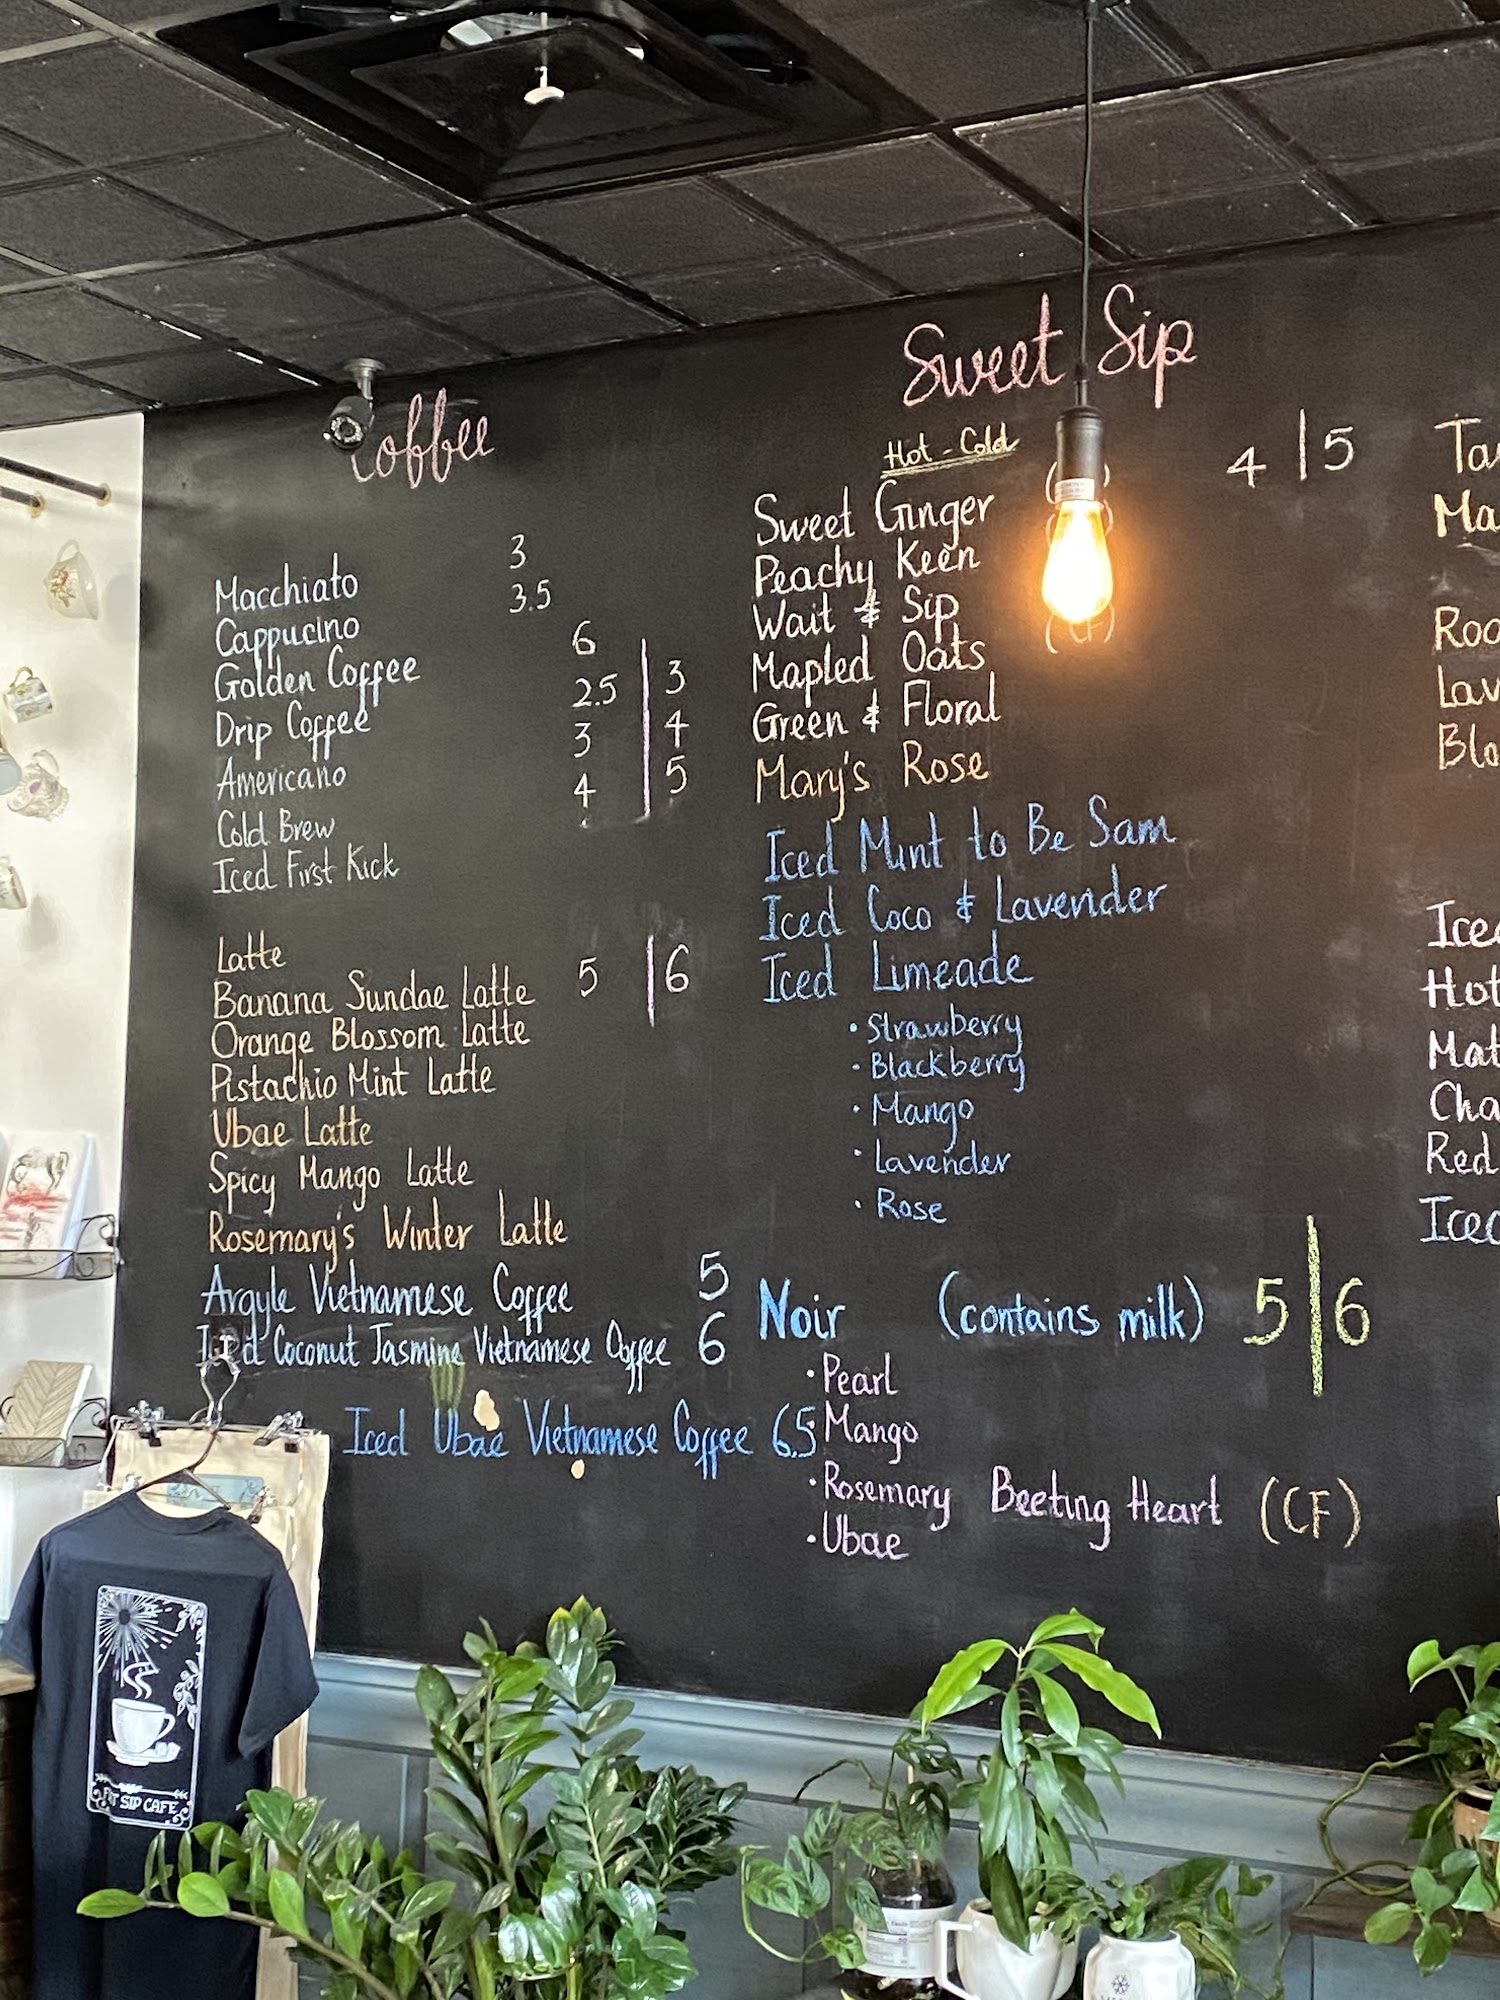 Coffee
Macchiato 3
Cappucino 3.5
Golden Coffee 6
Drip Coffee 2.5 | 3
Americano 3 | 4
Cold Brew 4 | 5
Iced First Kick
Latte
Banana Sundae Latte 5 | 6
Orange Blossom Latte
Pistachio Mint Latte
Ubae Latte
Spicy Mango Latte
Rosemary's Winter Latte
Argyle Vietnamese Coffee 5
Iced Coconut Jasmine Vietnamese Coffee 6
Iced Ubae Vietnamese Coffee 6.5
Sweet Sip
Hot - Cold 4 | 5
Sweet Ginger
Peachy Keen
Wait & Sip
Mapled Oats
Green & Floral
Mary's Rose
Iced Mint to Be Sam
Iced Coco & Lavender
Iced Limeade
• Strawberry
• Blackberry
• Mango
• Lavender
• Rose
Noir (contains milk) 5 | 6
• Pearl
• Mango
• Rosemary Beeting Heart (CF)
• Ubae
Iced
Hot
Red
Iced
SIP CAFE